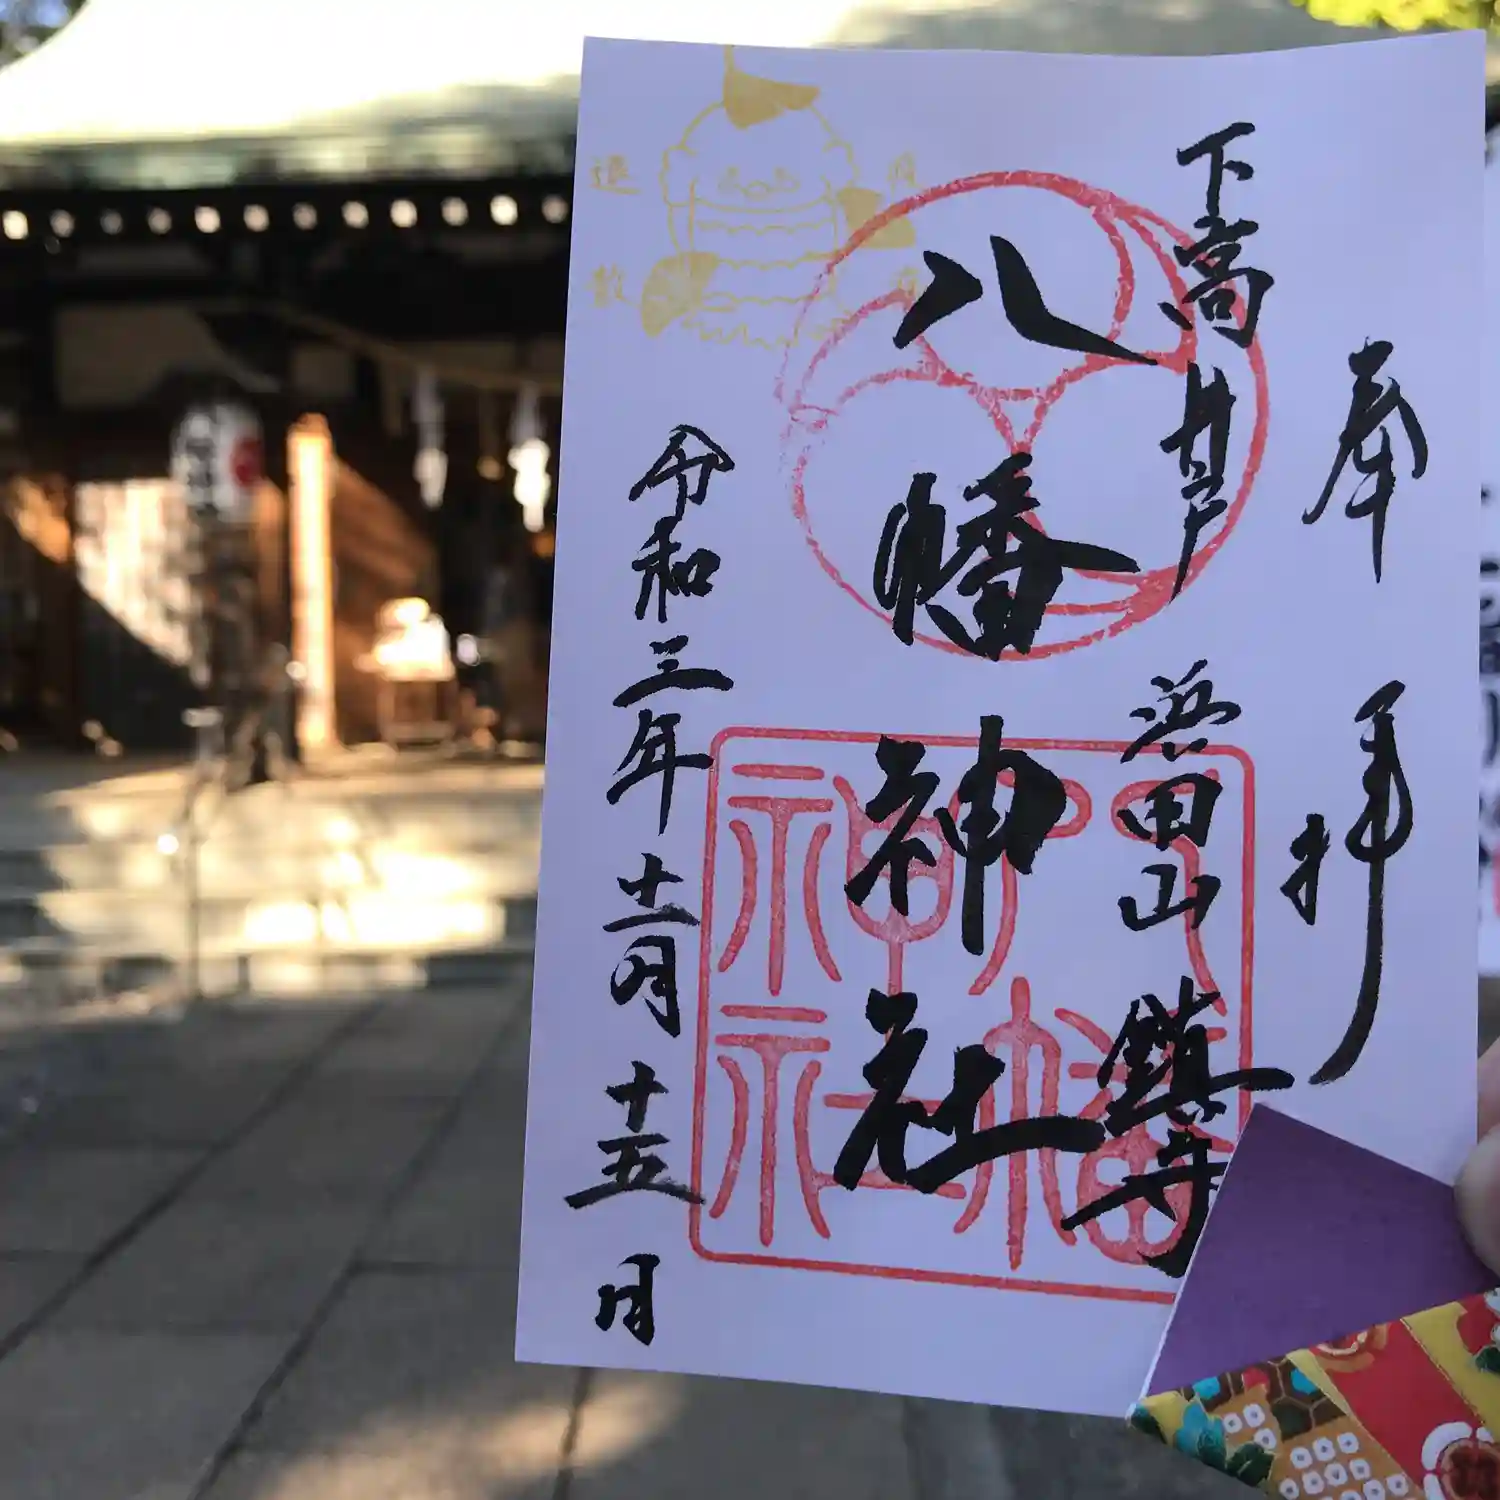 奉拝
下高井戸
浜田山鎮守
八幡神社
令和三年十二月十五日
疫病
退散
八幡
神社